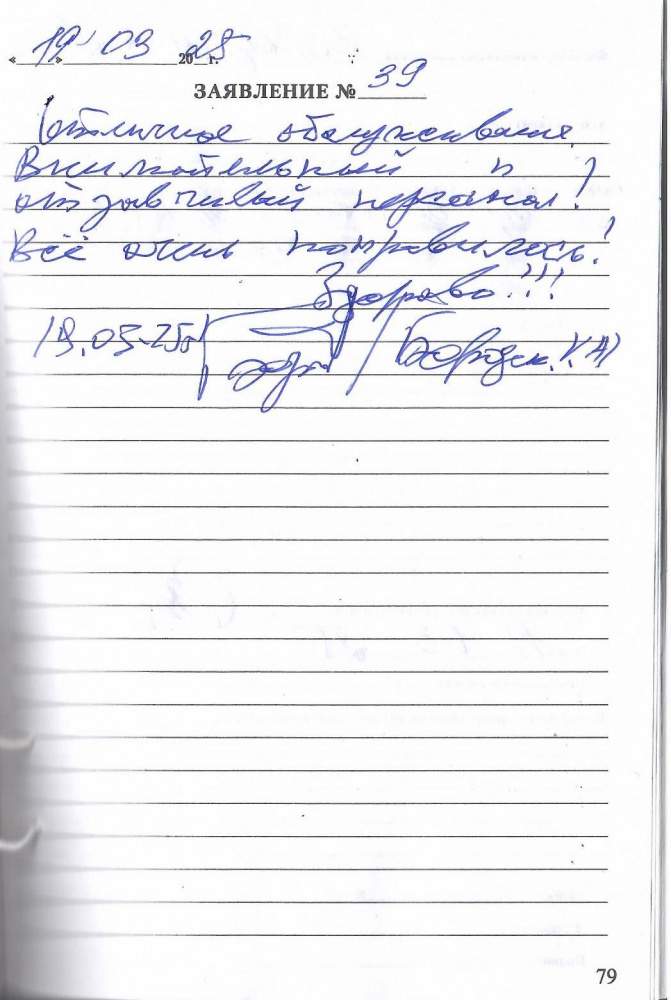 «19» 03 2025 г.
ЗАЯВЛЕНИЕ № 39
Отличное обслуживание.
Внимательный и
отзывчивый персонал!
Всё очень понравилось!
Здорово!!!
19.03.25г
79